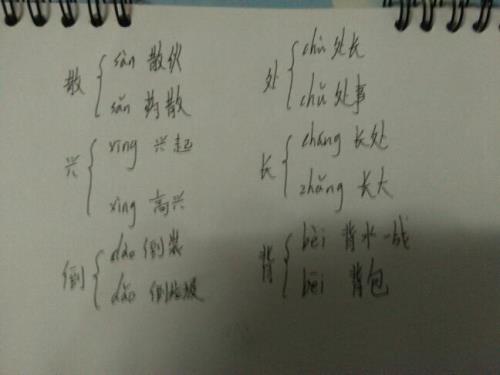 散 sàn 散伙
sǎn 散
兴 xīng 兴起
xìng 高兴
倒 dào 倒装
dǎo 倒垃圾
处 chù 处长
chǔ 处事
长 cháng 长处
zhǎng 长大
背 bèi 背水一战
bēi 背包